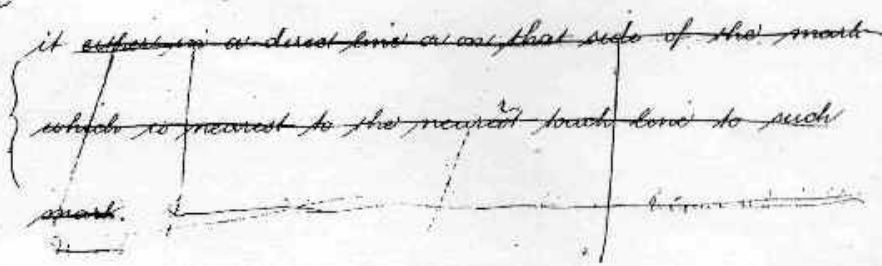 it either in a direct line or on that side of the mark
which is nearest to the nearest touch line to such
mark.